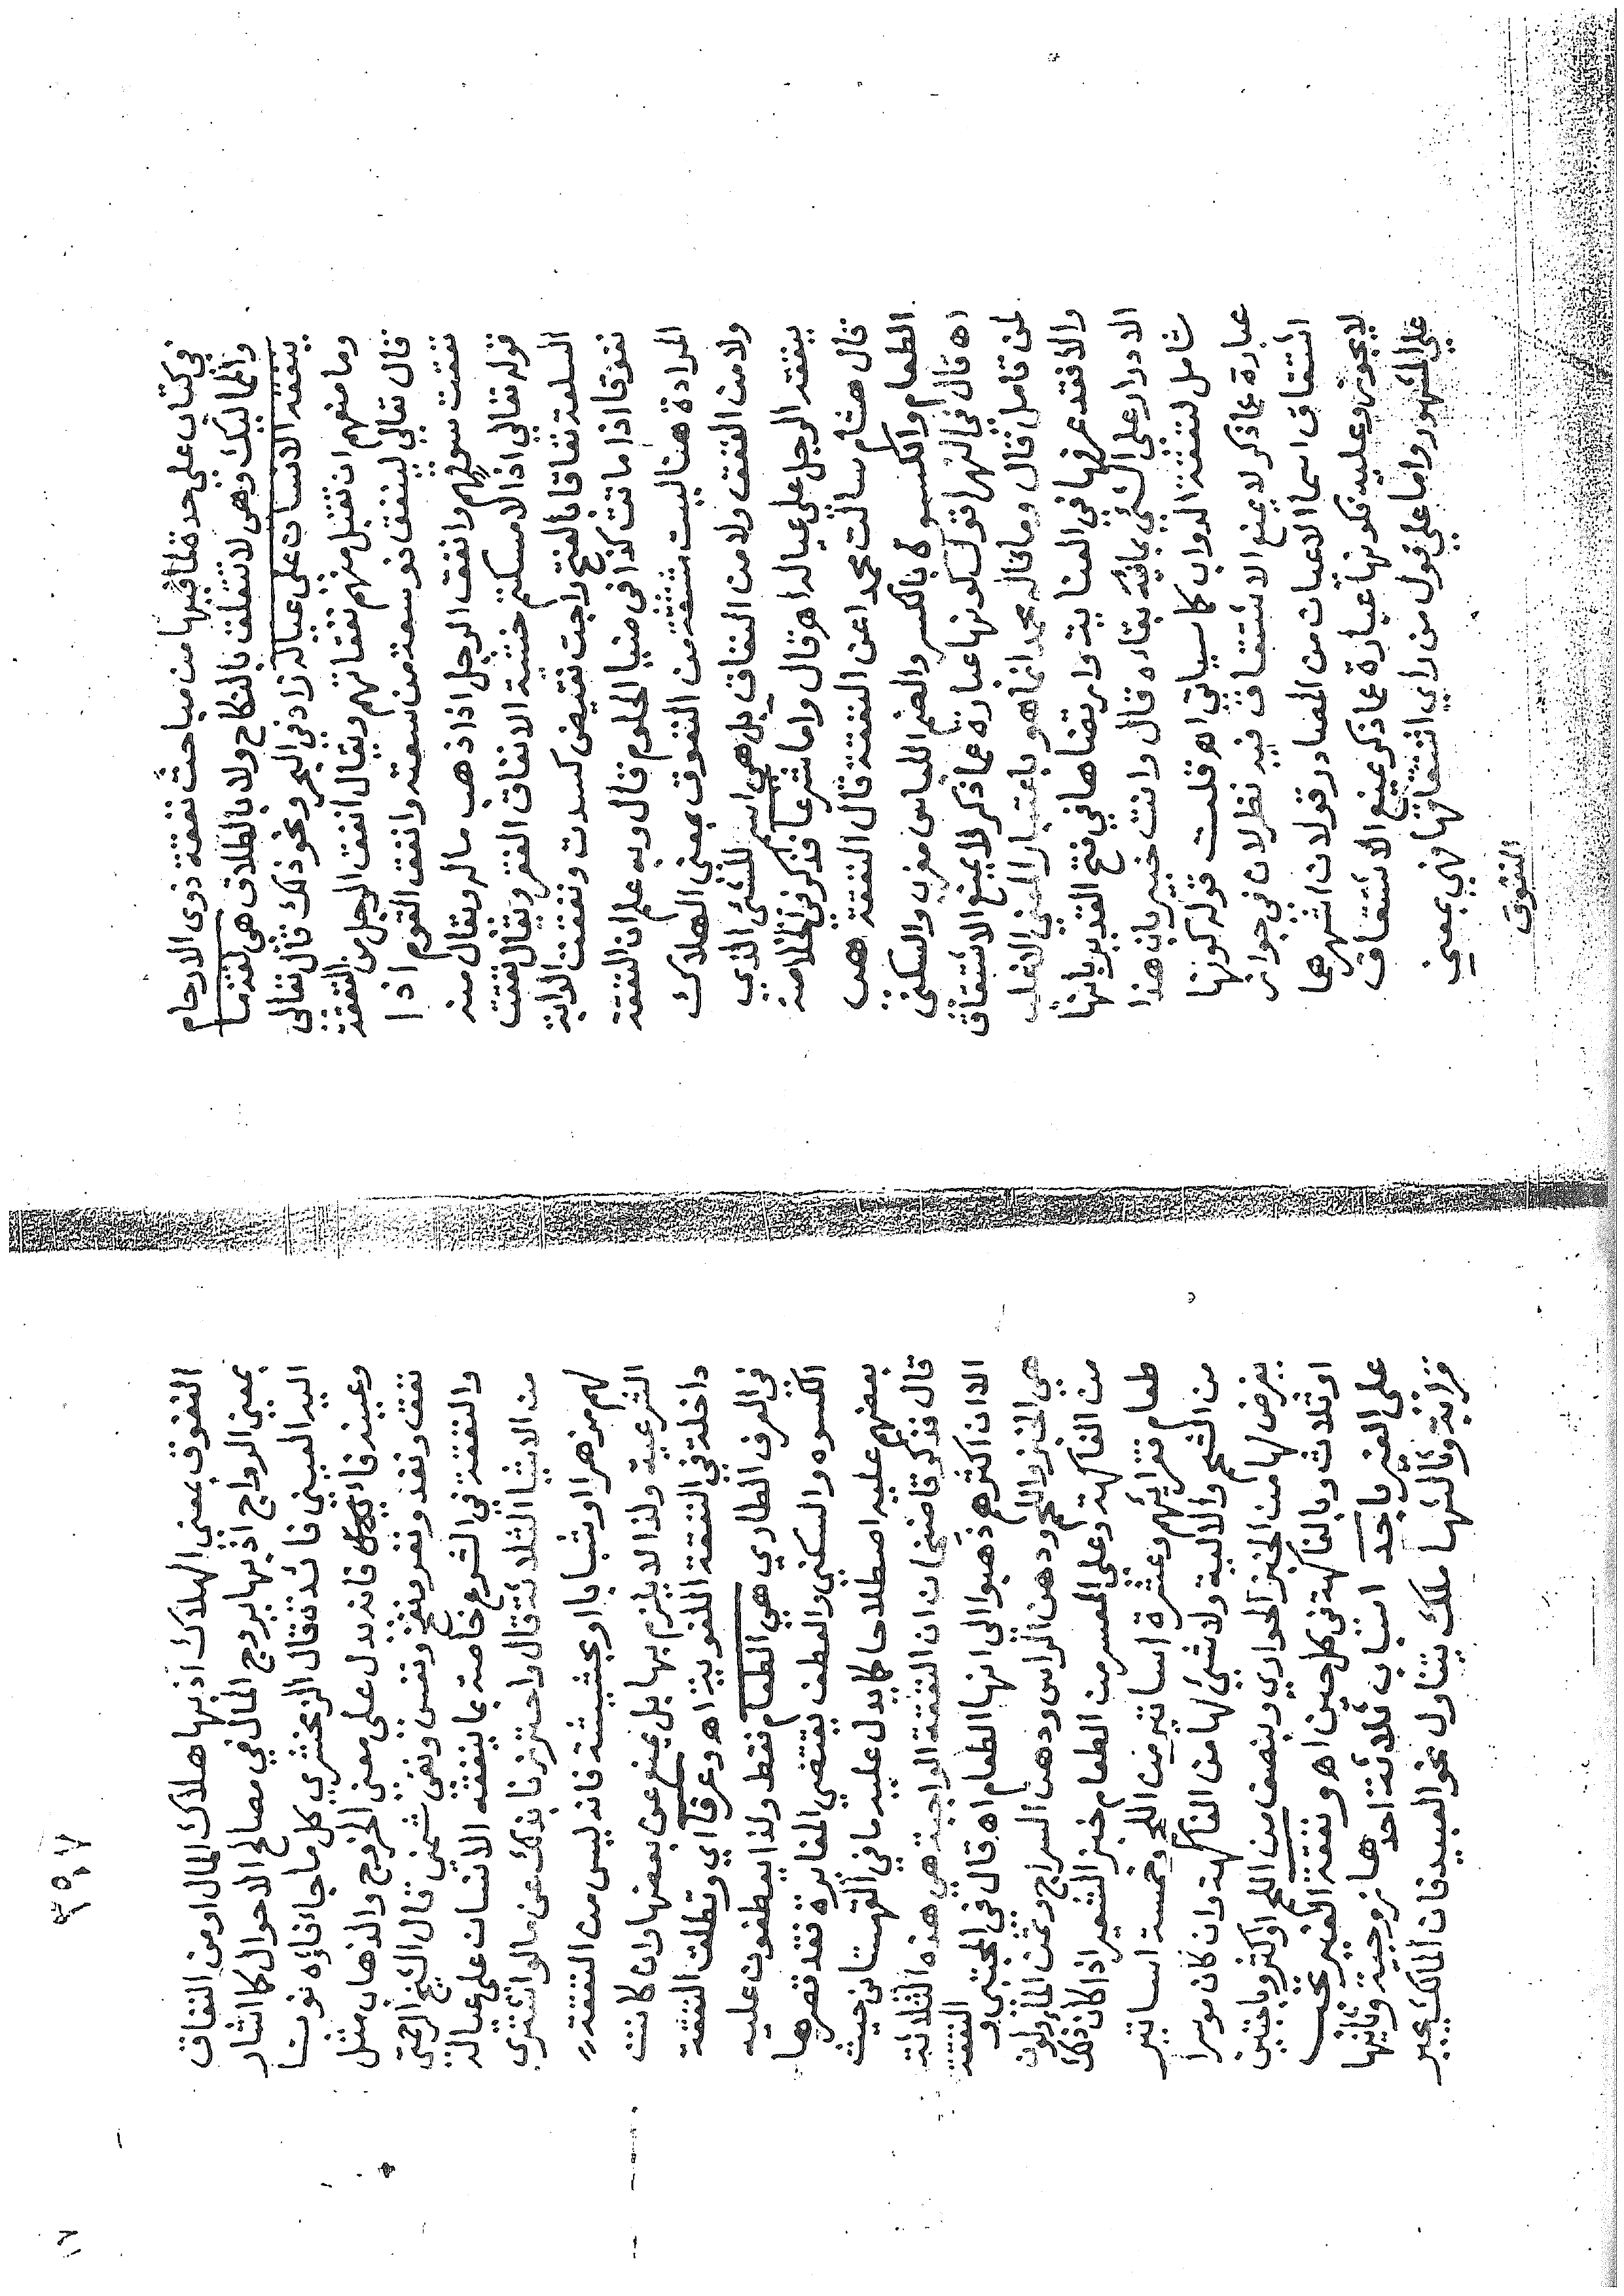 في كتاب على حدة لما فيها من مباحث نفقة ذوى الارحام
والمماليك وهى لا تتعلق بالنكاح ولا بالطلاق هى لغة ما
ينفقه الانسان على عياله زاد في البحر ونحو ذلك قال تعالى
وما منعهم ان تقبل منهم نفقاتهم ويقال انفق الرجل من النفقة
قال تعالى لينفق ذو سعة من سعته وانفق القوم اذا
نفقت سوقهم وانفق الرجل اذا ذهب ماله ويقال منه
قوله تعالى اذا لامسكتم خشية الانفاق الفقر ويقال نفقت
السلعة نفاقا بالفتح راجت نقيض كسدت ونفقت الدابة
نفوقا اذا ماتت كذا في ضيا الحلوم قال وبه علم ان النفقة
المرادة هنا ليست مشتقة من النفوق بمعنى الهلاك
ولا من النفق ولا من النفاق بل هي اسم للشئ الذي
ينفقه الرجل على عياله اهـ قال واما شرعا فذكر في الخلاصة
قال هشام سالت محمدا عن النفقة قال النفقة هى
الطعام والكسوة بالكسر والضم اللباس مغرب والسكنى
اه قال في النهر اقول كونها عبارة عما ذكر لا يمنع الاشتقاق
لمن تامل قال وما قاله محمد انما هو باعتبار المعنى الاغلب
والا فقد عرفها في العناية وارتضاها في فتح القدير بانها
الادرار على الشئ بما فيه بقاءه قال وانت خبير بان هذا
شامل لنفقة الدواب كما سياتي اهـ قلت قوله كونها
عبارة عما ذكر لا يمنع الاشتقاق فيه نظر لان في جواز
اشتقاق اسما الاعيان من المصادر قولان اشهرهما
لا يجوز وعليه فكونها عبارة عما ذكر يمنع الاشتقاق
على المشهور واما على قول من راي اشتقاقها فهي بمعنى
النفوق
النفوق بمعنى الهلاك اذ بها هلاك المال او من النفاق
بمعنى الرواج اذ بها يروج المال في مصالح الاحوال كما اشار
اليه العيني فائدة قال الزمخشري كل ما جا فاؤه نون
وعينه فا فانه يدل على معنى الخروج والذهاب مثل
نفق ونفذ ونفر ونفخ ونفس ونفى شمنى قال الشيخ الرحمتى
والنفقة في الشرع خاصة بما ينفقه الانسان على عياله
من الاشيا الثلاثة قال واحترزنا بذلك عن ما لو اشترى
لهم مزهرا او شبابا او بحشيشة فانه ليس من النفقة
الشرعية ولذا لا يلزم بها بل يمنع عن بعضها وان كانت
داخلة في النفقة اللغوية اه وعرفا اي وتطلق النفقة
في العرف الطاري هي الطعام فقط ولذا يعطفون عليه
الكسوه والسكنى والعطف يقتضي المغايرة فقد قصرها
بعضهم عليه اصطلاحا كما يدل عليه ما في القهستاني حيث
قال فذكر قاضيخان ان النفقة الواجبة هي هذه الثلاثة
الا ان اكثرهم ذهبوا الى انها الطعام اه قال في المجتبى والنفقة
هي الخبز واللحم ودهن الراس ودهن السراج وثمن الماء وليون
من الفاكهة وعلى المعسر من الطعام خبز الشعير اذا كان ذلك
طعام نظرائهم وعشرة اساتير من اللحم وخمسة اساتير
من الشحم والالية ولا شئ لها من الفاكهة وان كان موسرا
يفرض لها من الخبز الحواري وبنصف من اللحم او كثر وباجتين
او ثلاث وبالفاكهة في كل حين اه ونفقة الغير تجب
على الغير باحد اسباب ثلاثة احدها زوجية وثانيها
قرابة وثالثها ملك يتناول نحو العبيد فان المالك يجبر